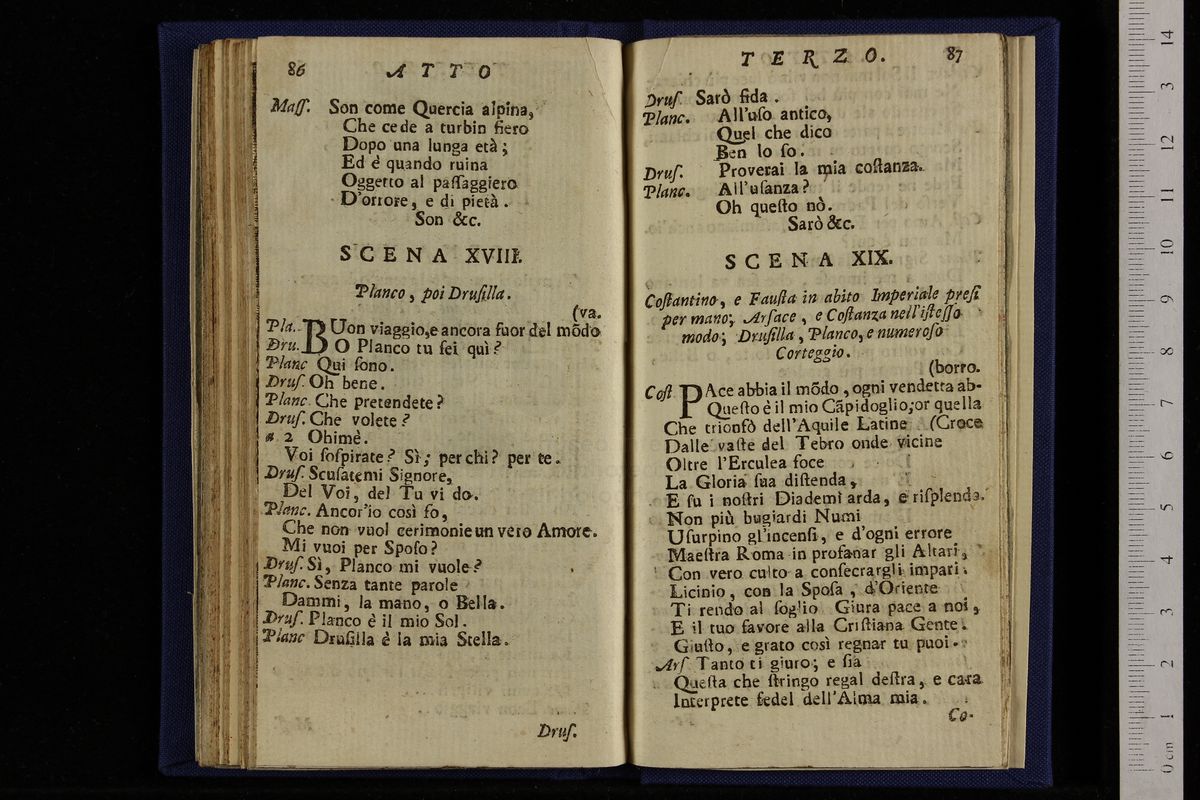 86 ATTO
Maſſ. Son come Quercia alpina,
Che cede a turbin fiero
Dopo una lunga età;
Ed è quando ruina
Oggetto al paſſaggiero
D'orrore, e di pietà.
Son &c.
SCENA XVIII.
Planco, poi Druſilla.
(va.
Pla. BUon viaggio, e ancora fuor del mõdo
Dru. O Planco tu ſei quì?
Planc Qui ſono.
Druſ. Oh bene.
Planc. Che pretendete?
Druſ. Che volete?
a 2 Ohimè.
Voi ſoſpirate? Sì; per chi? per te.
Druſ. Scuſatemi Signore,
Del Voi, del Tu vi do.
Planc. Ancor'io così fo,
Che non vuol cerimonie un vero Amore.
Mi vuoi per Spoſo?
Druſ. Sì, Planco mi vuole?
Planc. Senza tante parole
Dammi, la mano, o Bella.
Druſ. Planco è il mio Sol.
Planc Druſilla è la mia Stella.
Druſ.
TERZO. 87
Druſ. Sarò fida.
Planc. All'uſo antico,
Quel che dico
Ben lo ſo.
Druſ. Proverai la mia coſtanza.
Planc. All'uſanza?
Oh queſto nò.
Sarò &c.
SCENA XIX.
Coſtantino, e Fauſta in abito Imperiale preſi
per mano; Arſace, e Coſtanza nell'iſteſſo
modo; Druſilla, Planco, e numeroſo
Corteggio.
(borro.
Coſt PAce abbia il mõdo, ogni vendetta ab-
Queſto è il mio Cãpidoglio; or quella
Che trionfò dell'Aquile Latine (Croce
Dalle vaſte del Tebro onde vicine
Oltre l'Erculea foce
La Gloria ſua diſtenda,
E ſu i noſtri Diademi arda, e riſplenda.
Non più bugiardi Numi
Uſurpino gl'incenſi, e d'ogni errore
Maeſtra Roma in profanar gli Altari,
Con vero culto a conſecrargli impari.
Licinio, con la Spoſa, d'Oriente
Ti rendo al ſoglio Giura pace a noi,
E il tuo favore alla Criſtiana Gente.
Giuſto, e grato così regnar tu puoi.
Arſ Tanto ti giuro; e ſia
Queſta che ſtringo regal deſtra, e cara
Interprete fedel dell'Alma mia.
Co-
0 cm 1 2 3 4 5 6 7 8 9 10 11 12 13 14